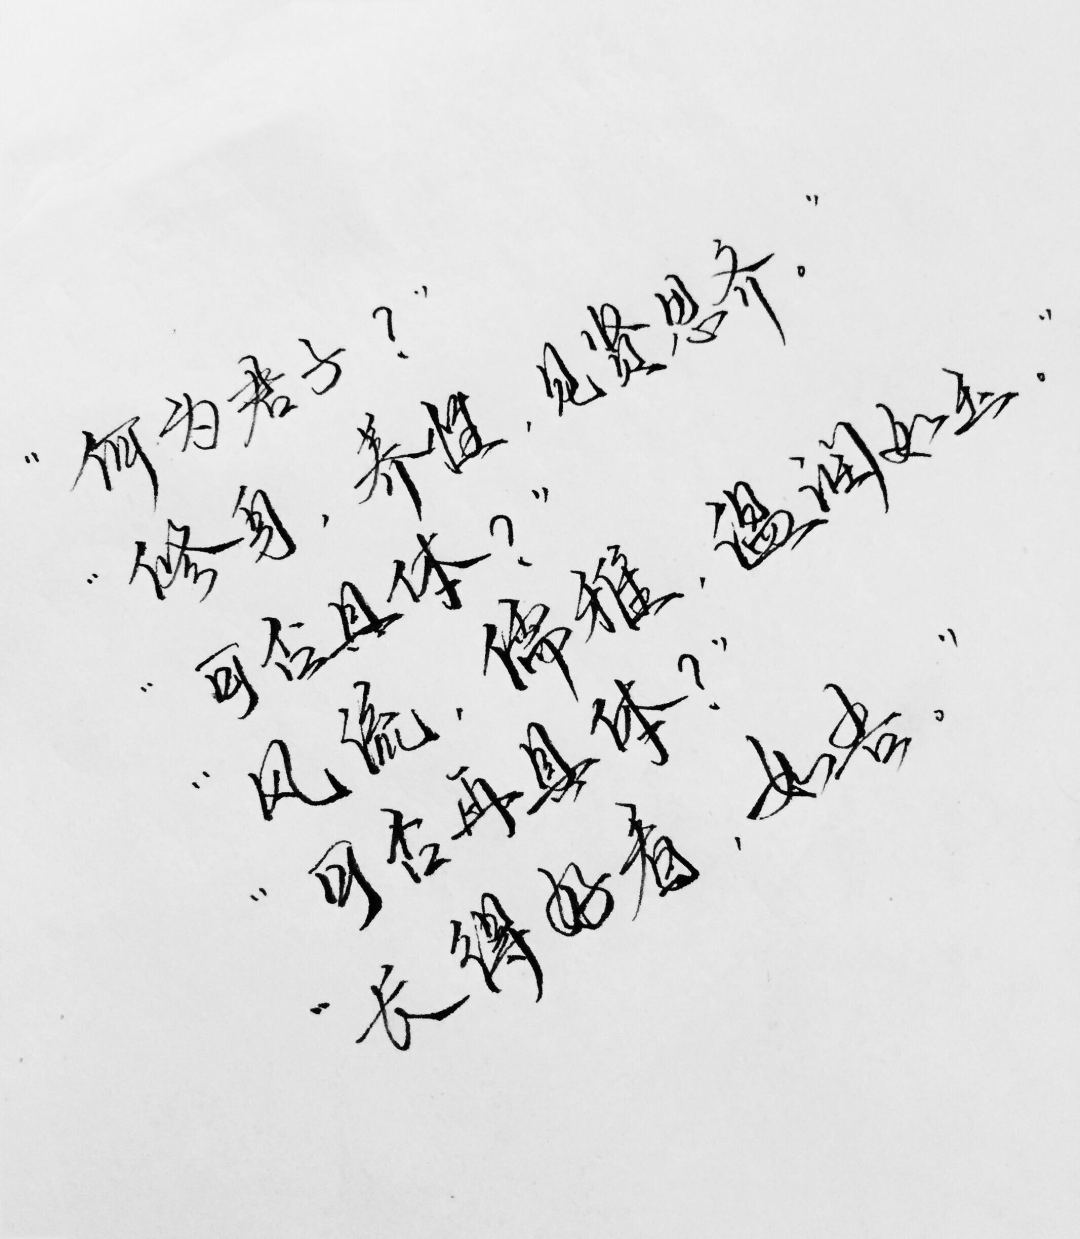 "何为君子？"
"修身，养性，见贤思齐。"
"可否具体？"
"风流，儒雅，温润如玉。"
"可否再具体？"
"长得好看，如吾。"